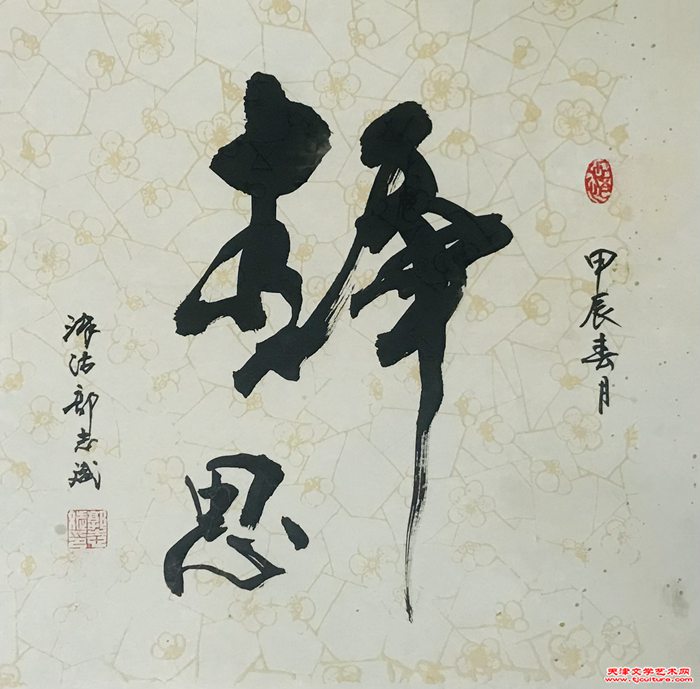 甲辰春月
静思
津沽郭志斌
天津文学艺术网
www.tjculture.com